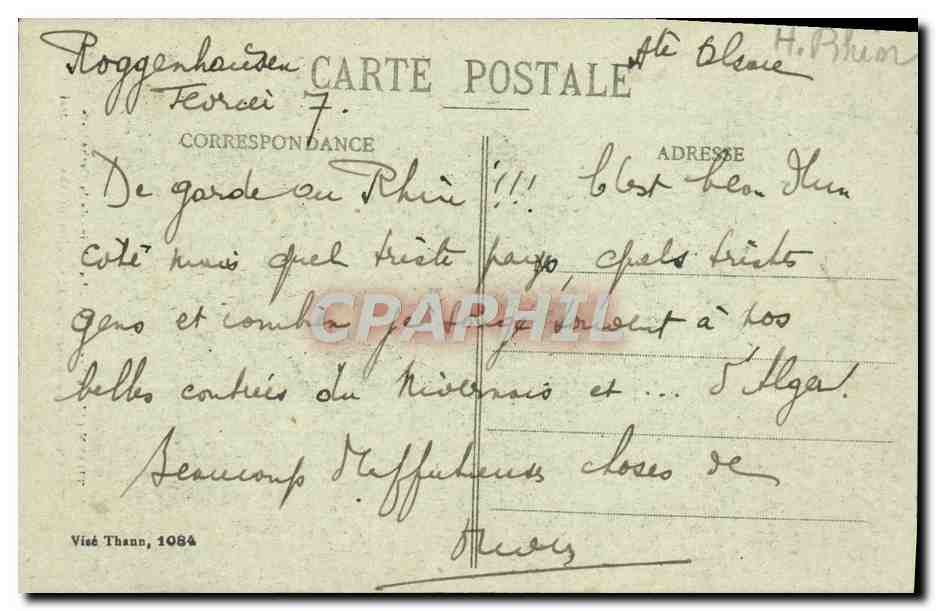 Roggenhausen Hte Alsace H. Rhin
CARTE POSTALE
7.
CORRESPONDANCE
ADRESSE
De garde au Rhin !!! C'est bien d'un
côté mais quel triste pays, quels tristes
gens et combien je songe souvent à nos
belles contrées du Nivernais et ... d'Alger!
Beaucoup d'affectueuses choses de
Visé Thann, 1084
CPAPHIL